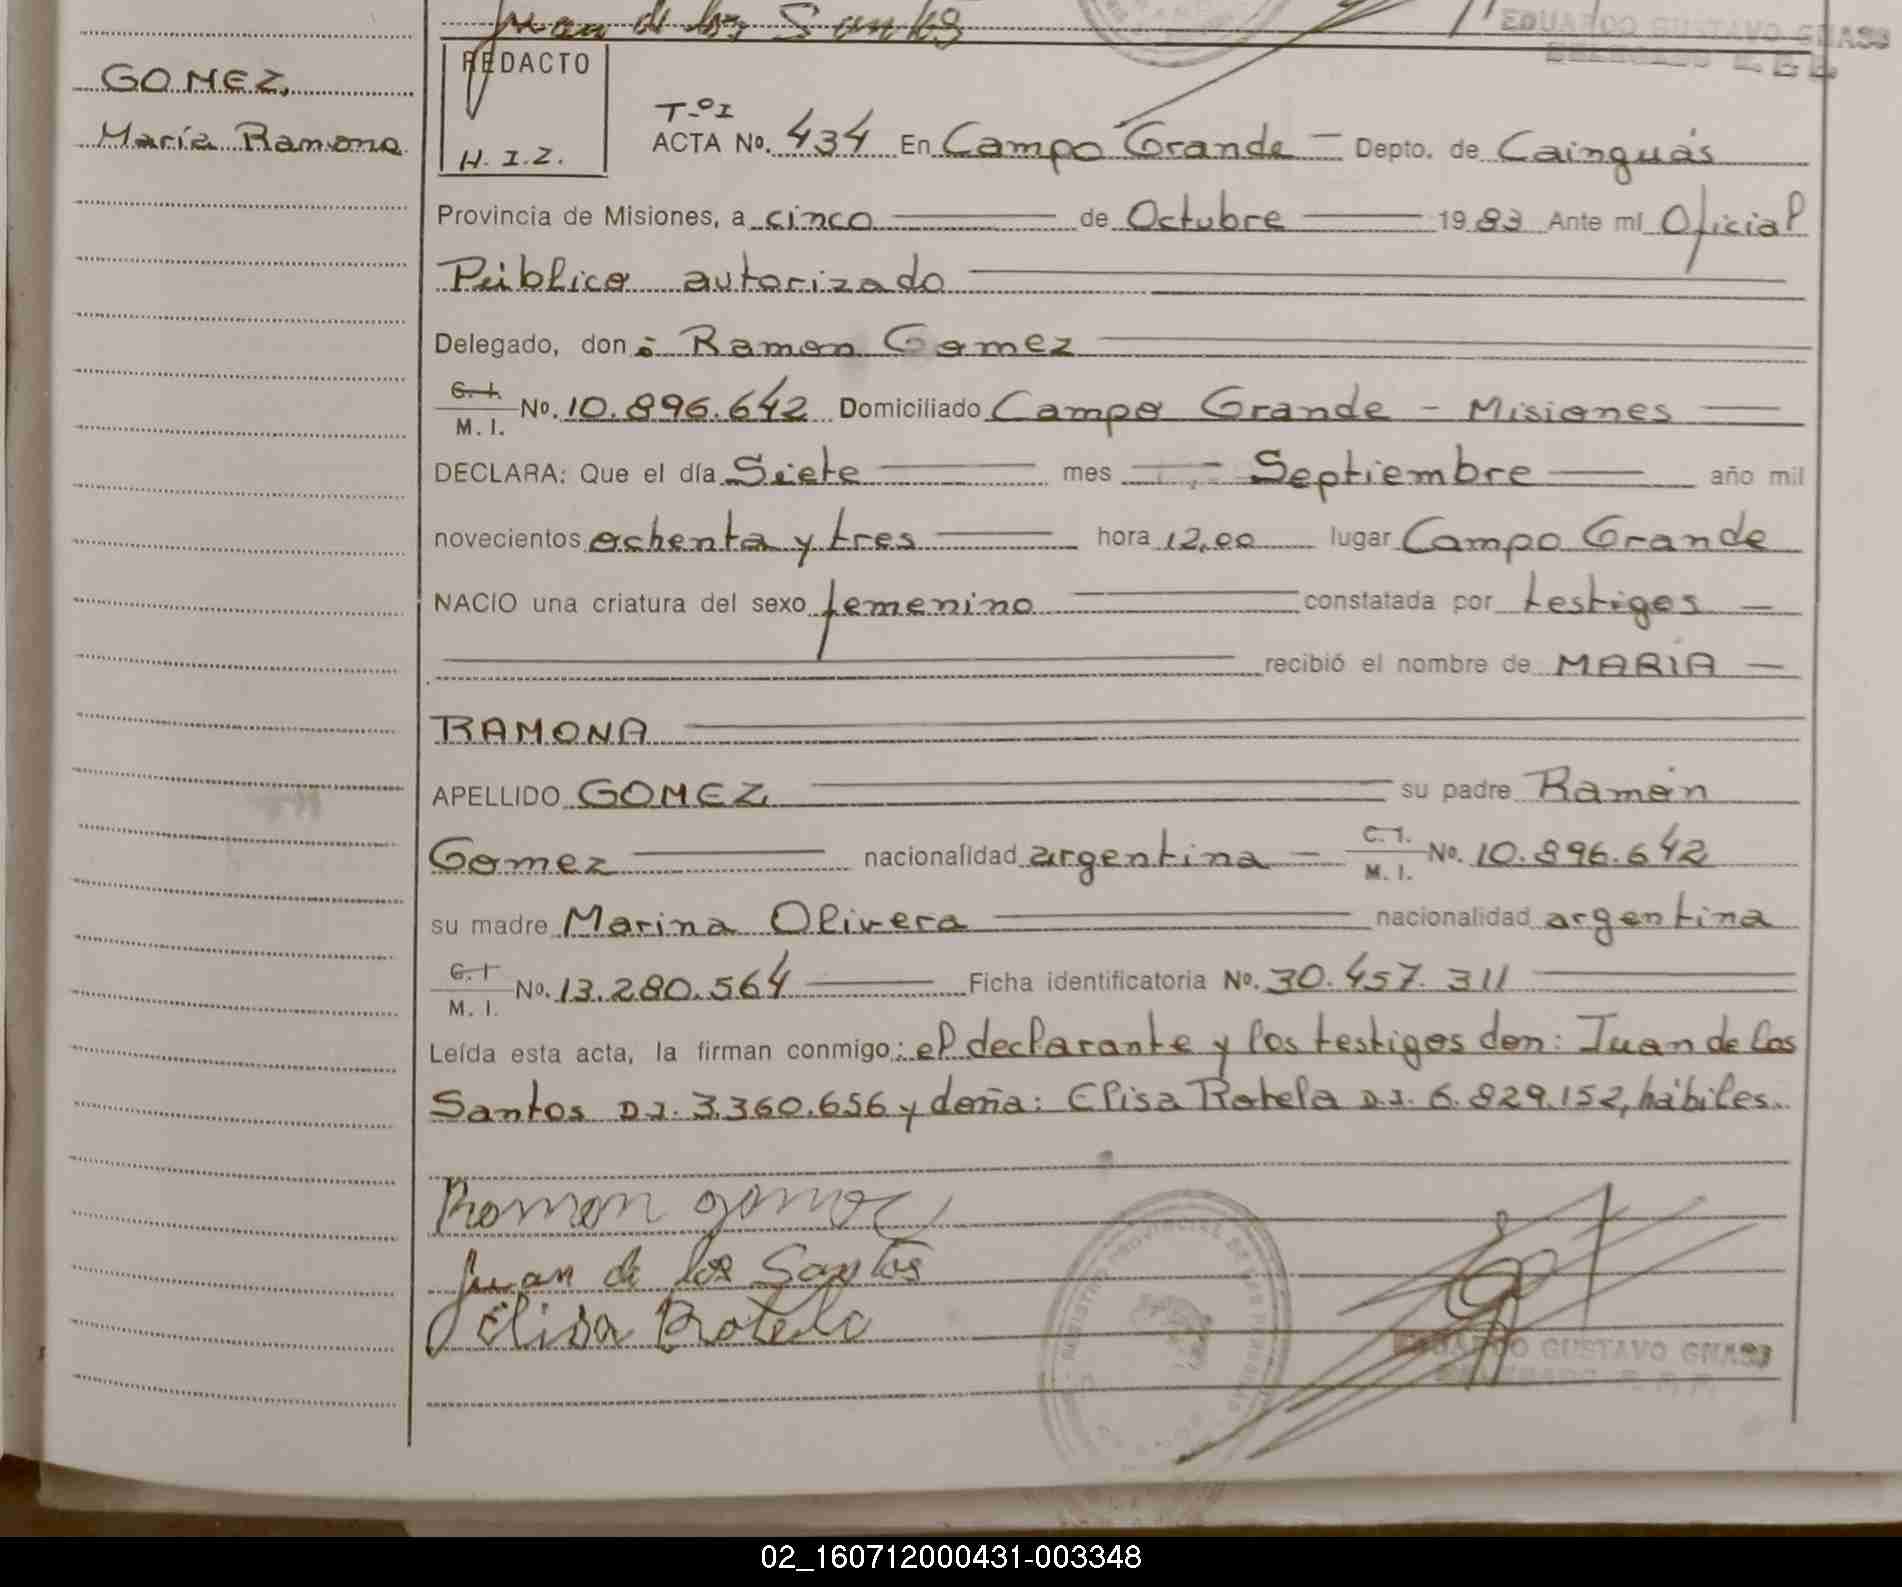 Juan de los Santos
EDUARDO GUSTAVO GNASS
GOMEZ,
María Ramona
REDACTO
H. I. Z.
T-º I
ACTA Nº. 434 En Campo Grande — Depto. de Cainguás
Provincia de Misiones, a cinco — de Octubre — 1983 Ante mí Oficial
Público autorizado —
Delegado, don: Ramon Gomez —
C. I. / M. I. Nº. 10.896.642 Domiciliado Campo Grande - Misiones —
DECLARA: Que el día Siete — mes — Septiembre — año mil
novecientos ochenta y tres — hora 12,00 lugar Campo Grande
NACIO una criatura del sexo femenino — constatada por testigos —
— recibió el nombre de MARIA —
RAMONA —
APELLIDO GOMEZ — su padre Ramón
Gomez — nacionalidad argentina — C. I. / M. I. Nº. 10.896.642
su madre Marina Olivera — nacionalidad argentina
C. I / M. I. Nº. 13.280.564 — Ficha identificatoria Nº. 30.457.311 —
Leída esta acta, la firman conmigo: el declarante y los testigos don: Juan de los
Santos D.I. 3.360.656 y doña: Elisa Rotela D.I. 6.829.152, hábiles.
Ramon gomez
Juan de los Santos
Elisa Rotela
REGISTRO PROVINCIAL DE LAS PERSONAS
EDUARDO GUSTAVO GNASS
02_160712000431-003348